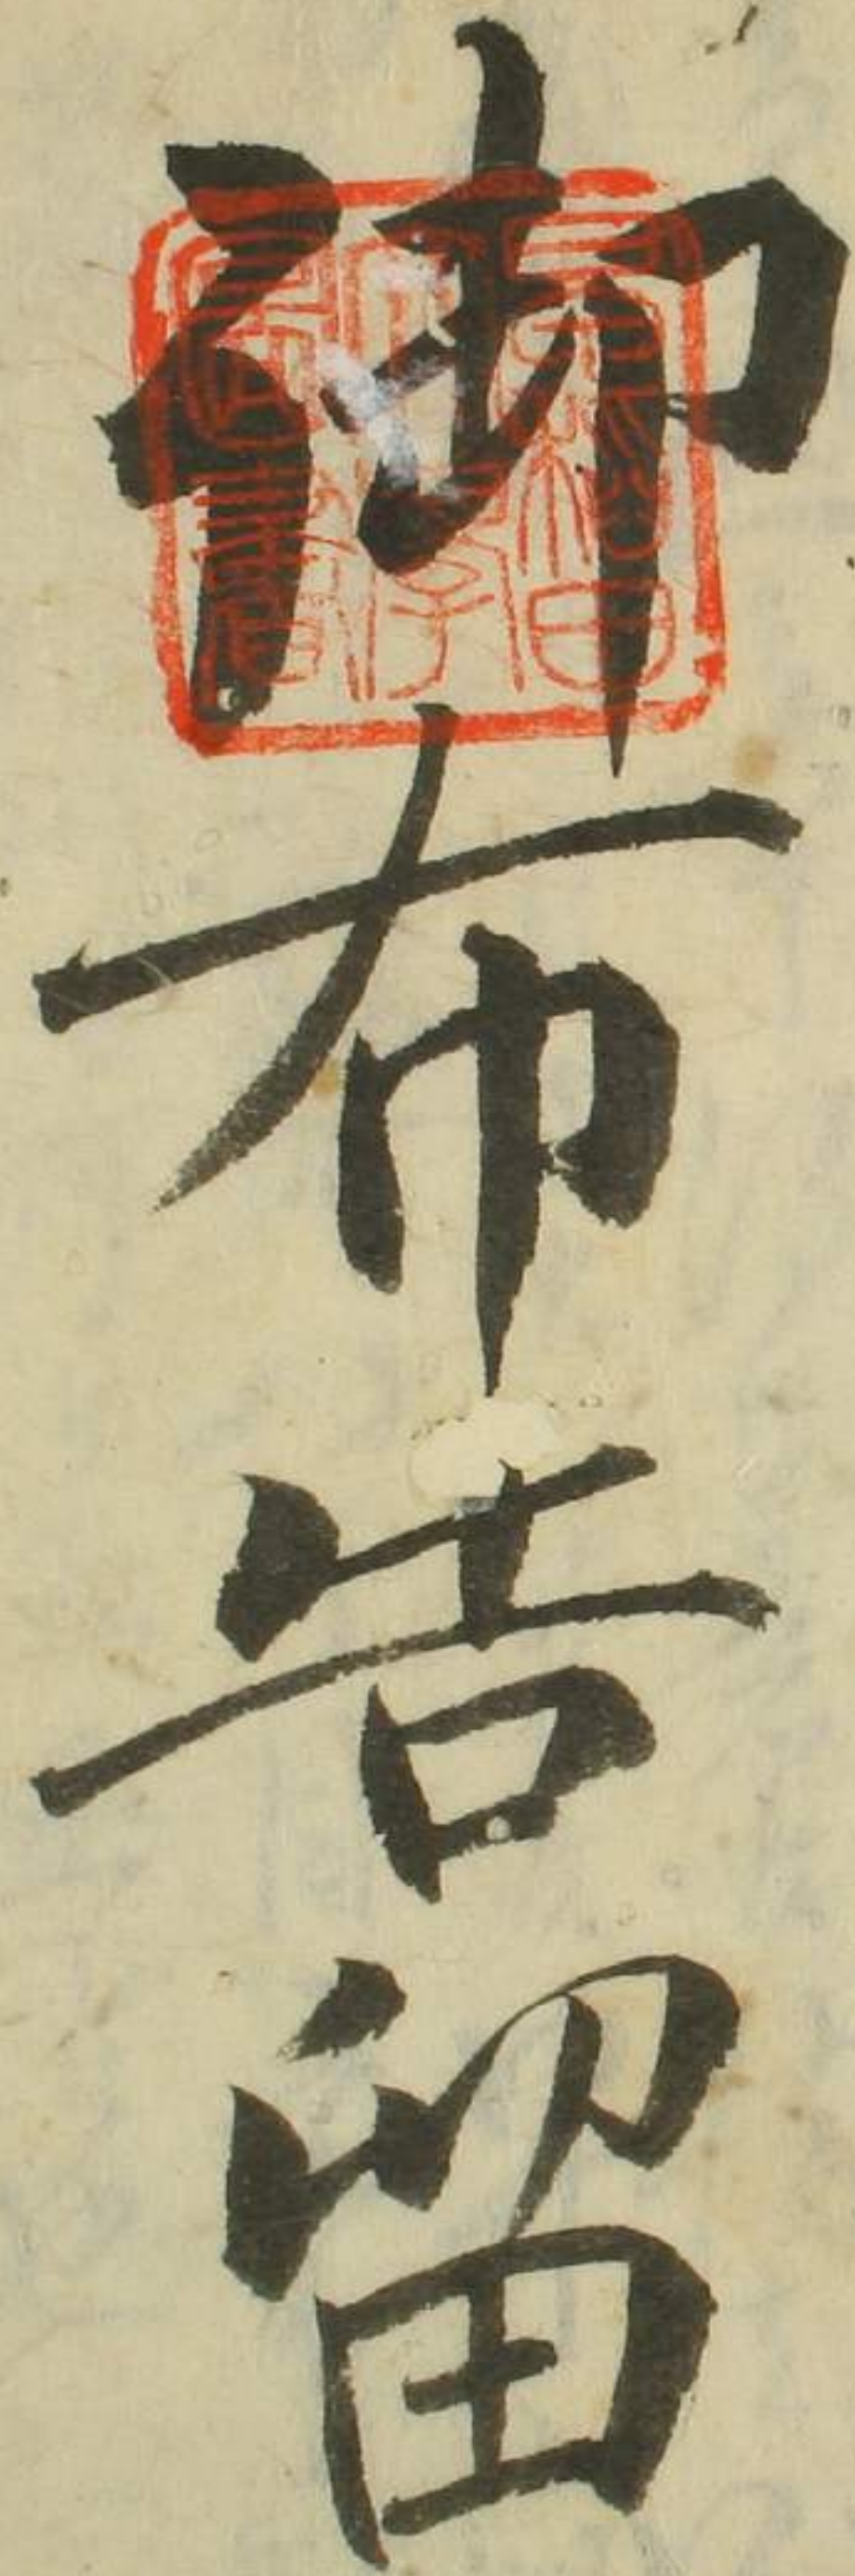 御布告留